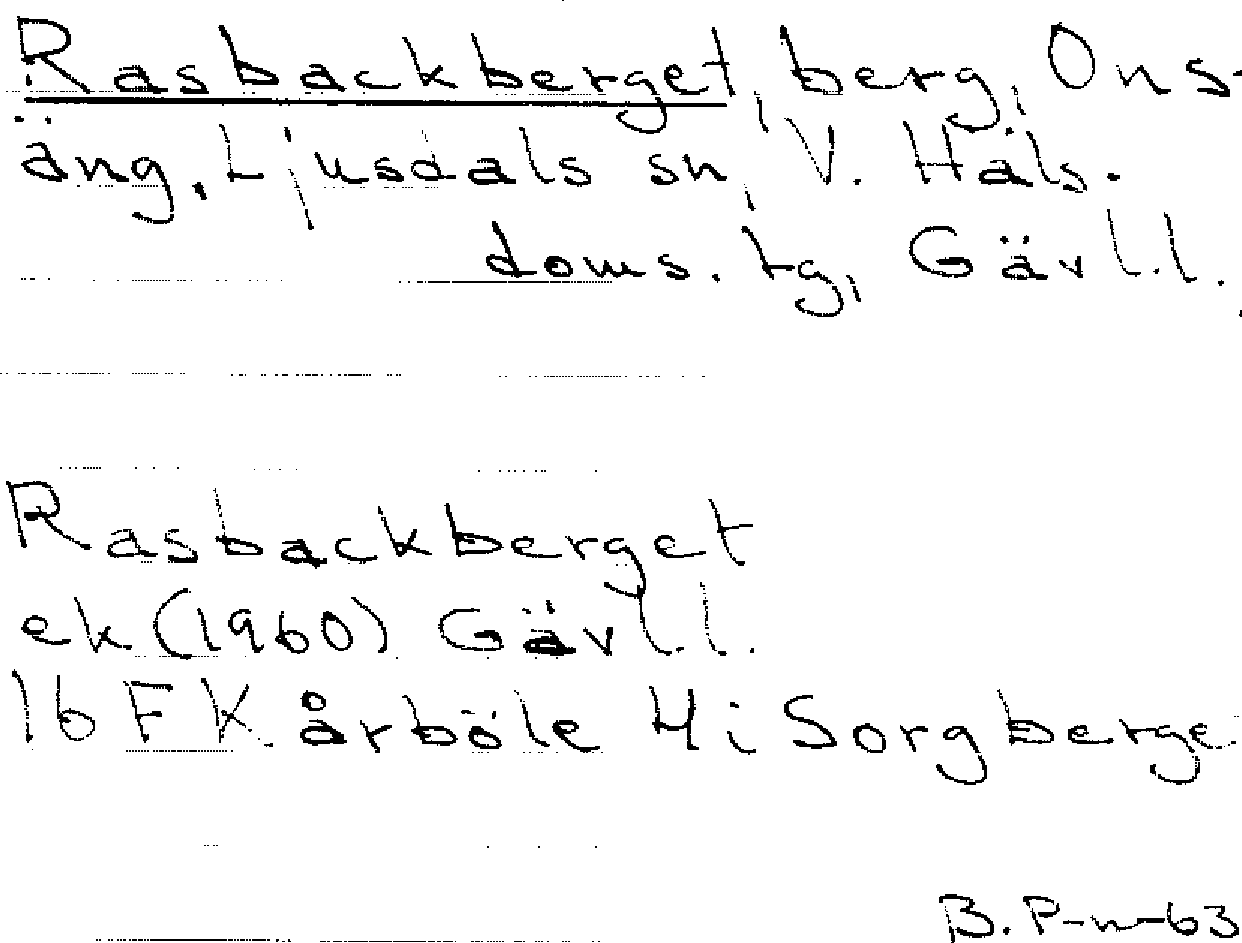 Rasbackberget, berg, Ons-
äng, Ljusdals sn, V. Häls.
doms. tg, Gävl.l.
Rasbackberget
ek (1960) Gävl.l.
16 F K. årböle Hi Sorgberge
B. P-n-63